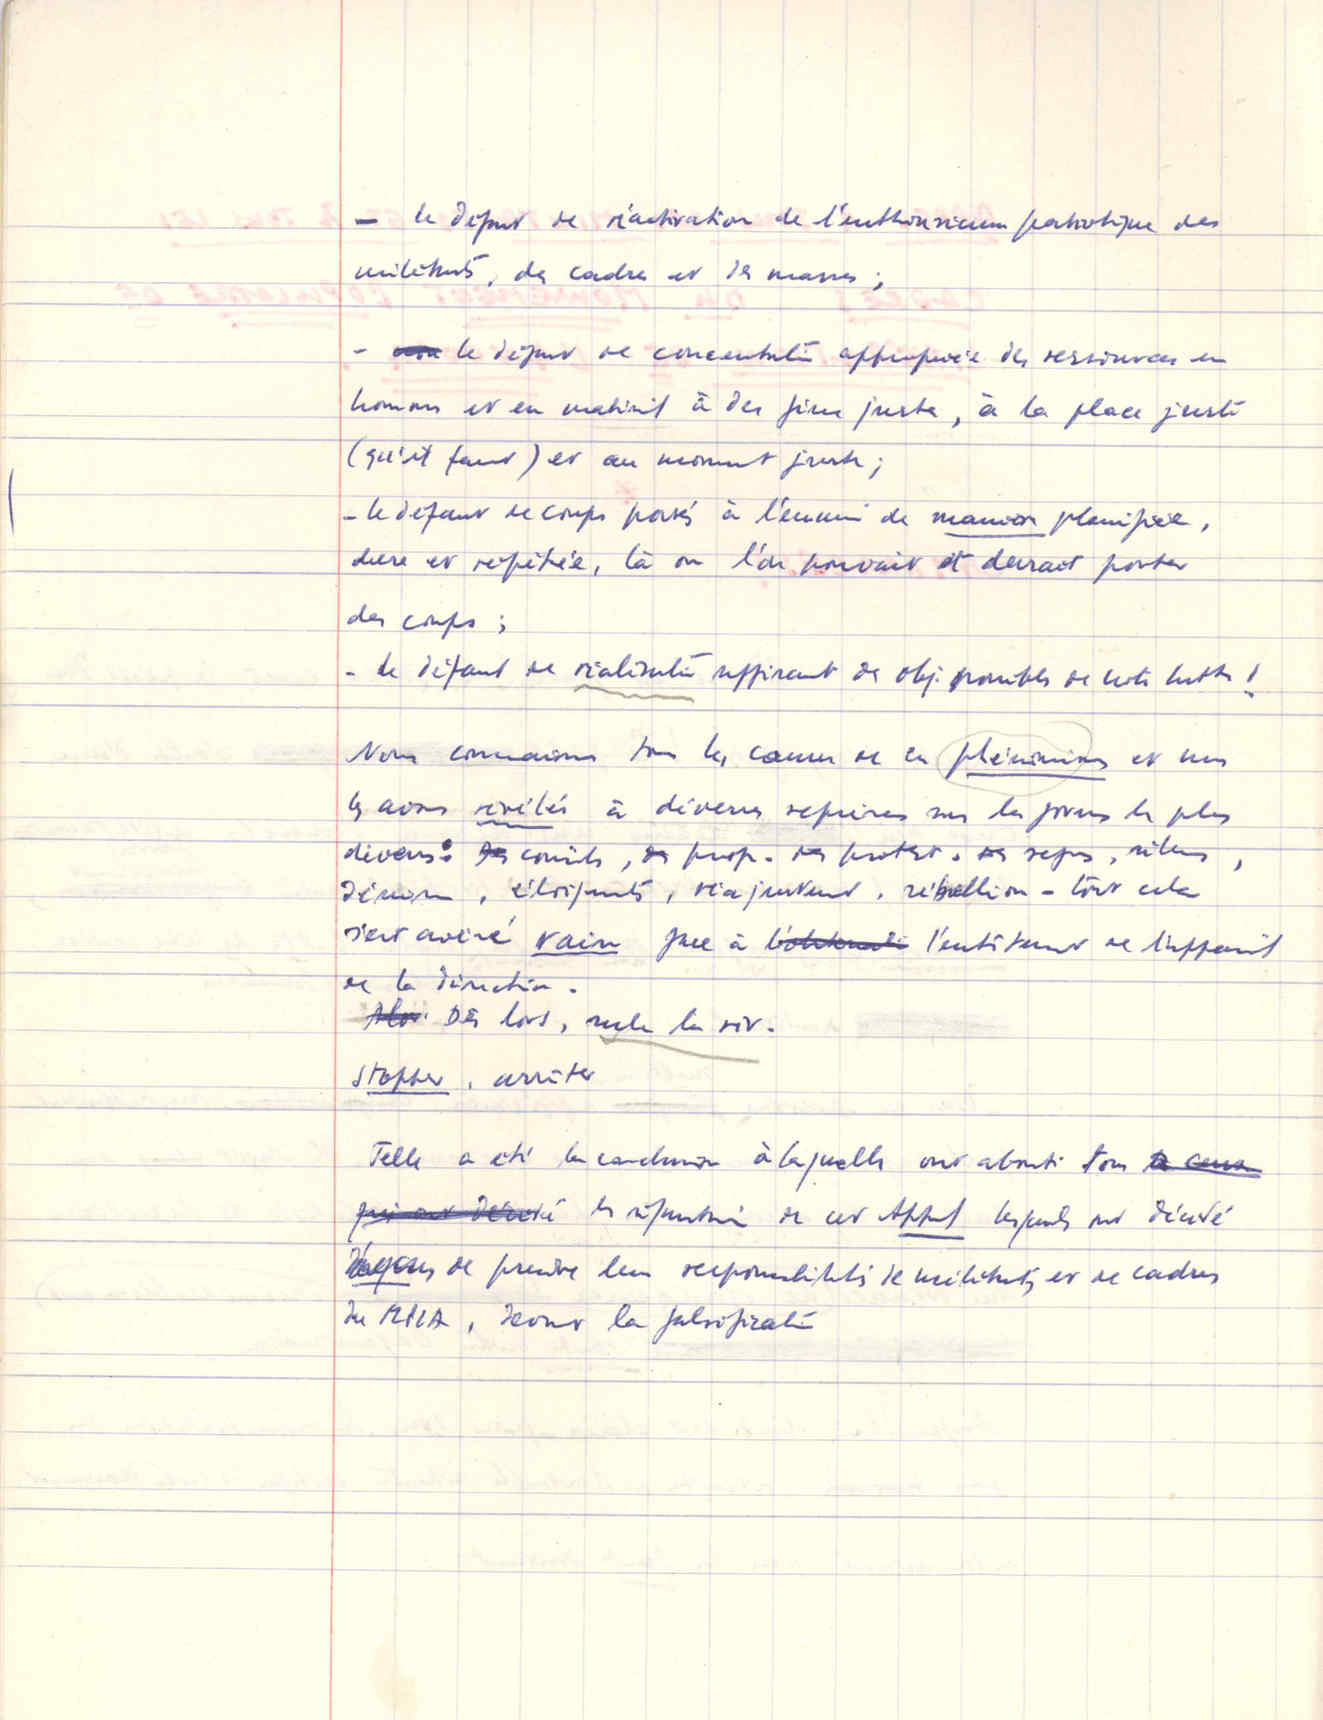 - le défaut de réactivation de l'enthousiasme patriotique des
militants, des cadres et des masses ;
- le défaut de concentration appropriée des ressources en
hommes et en matériel à des fins justes, à la place juste
(qu'il faut) et au moment juste ;
- le défaut de coups portés à l'ennemi de manière planifiée,
dure et répétée, là où l'on pouvait et devrait porter
des coups ;
- le défaut de réalisation suffisant des obj. possibles de notre lutte !
Nous connaissons tous les causes de ces phénomènes et nous
les avons révélés à diverses reprises sous les formes les plus
diverses : conseils, prop. protest. refus, silence,
démission, éloignements, réajustement, rébellion - tout cela
s'est avéré vain face à l'entêtement de l'appareil
de la direction.
Alors Dès lors, seule la voie.
Stopper, arrêter
Telle a été la conclusion à laquelle ont abouti tous ceux
qui ont décidé les signataires de cet Appel lesquels ont décidé
de prendre leurs responsabilités de militants et de cadres
du MPLA, devant la falsification